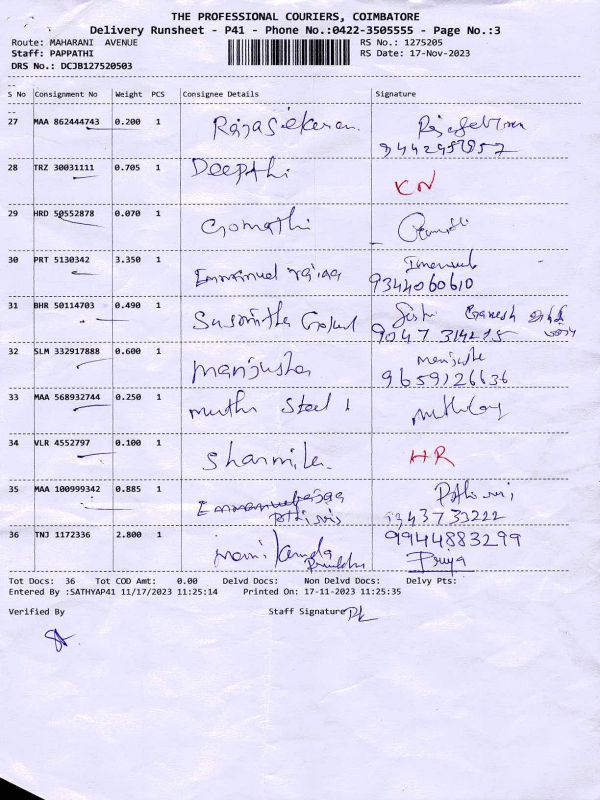 THE PROFESSIONAL COURIERS, COIMBATORE
Delivery Runsheet - P41 - Phone No.:0422-3505555 - Page No.:3
Route: MAHARANI AVENUE RS No.: 1275205
Staff: PAPPATHI RS Date: 17-Nov-2023
DRS No.: DCJB127520503
S No Consignment No Weight PCS Consignee Details Signature
27 MAA 862444743 0.200 1 Rajasekaran
28 TRZ 30031111 0.705 1 Deepthi
29 HRD 50552878 0.070 1 Gomathi
30 PRT 5130342 3.350 1 Emmanuel
9344060610
31 BHR 50114703 0.490 1 Susmitha Gokul Ganesh
9047314215
32 SLM 332917888 0.600 1 manjusha manjusha
9659126636
33 MAA 568932744 0.250 1 muthu Steel
34 VLR 4552797 0.100 1 Sharmila HR
35 MAA 100999342 0.885 1
36 TNJ 1172336 2.800 1 mani 9944883299
Priya
Tot Docs: 36 Tot COD Amt: 0.00 Delvd Docs: Non Delvd Docs: Delvy Pts:
Entered By :SATHYAP41 11/17/2023 11:25:14 Printed On: 17-11-2023 11:25:35
Verified By Staff Signature